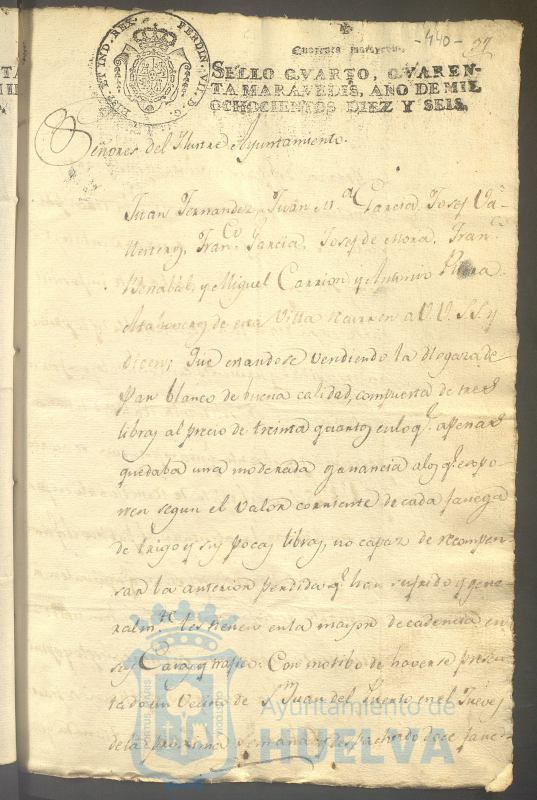 -440-
Quarenta maravedis.
SELLO QVARTO, QVAREN-
TA MARAVEDIS, AÑO DE MIL
OCHOCIENTOS DIEZ Y SEIS.
Señores del Ilustre Ayuntamiento.
Juan Fernandez, Juan M.ª Garcia, Josef
Fran.co Garcia, Josef de Mora, Fran.co
y Miguel Carrion, y Antonio
de esta Villa ocurren a V.V. S.S. y
dicen: Que estandose vendiendo la Hogaza de
Pan blanco de buena calidad, compuesta de tres
libras al precio de treinta quartos en lo q.e apenas
quedaba una moderada ganancia a los q.e espo-
nen segun el valor corriente de cada fanega
de trigo y sus pocas libras, no capaz de recompen-
sar la anterior perdida q.e han sufrido y gene-
ralm.te les tienen en la mayor decadencia en
sus Casas y trafico. Con motibo de haverse presen-
tado un Vecino de S.n Juan del Puerto en el Jueves
de la proxima semana y despachado doce fane-
Ayuntamiento de
HUELVA
PORTUS MARIS
CUSTODIA